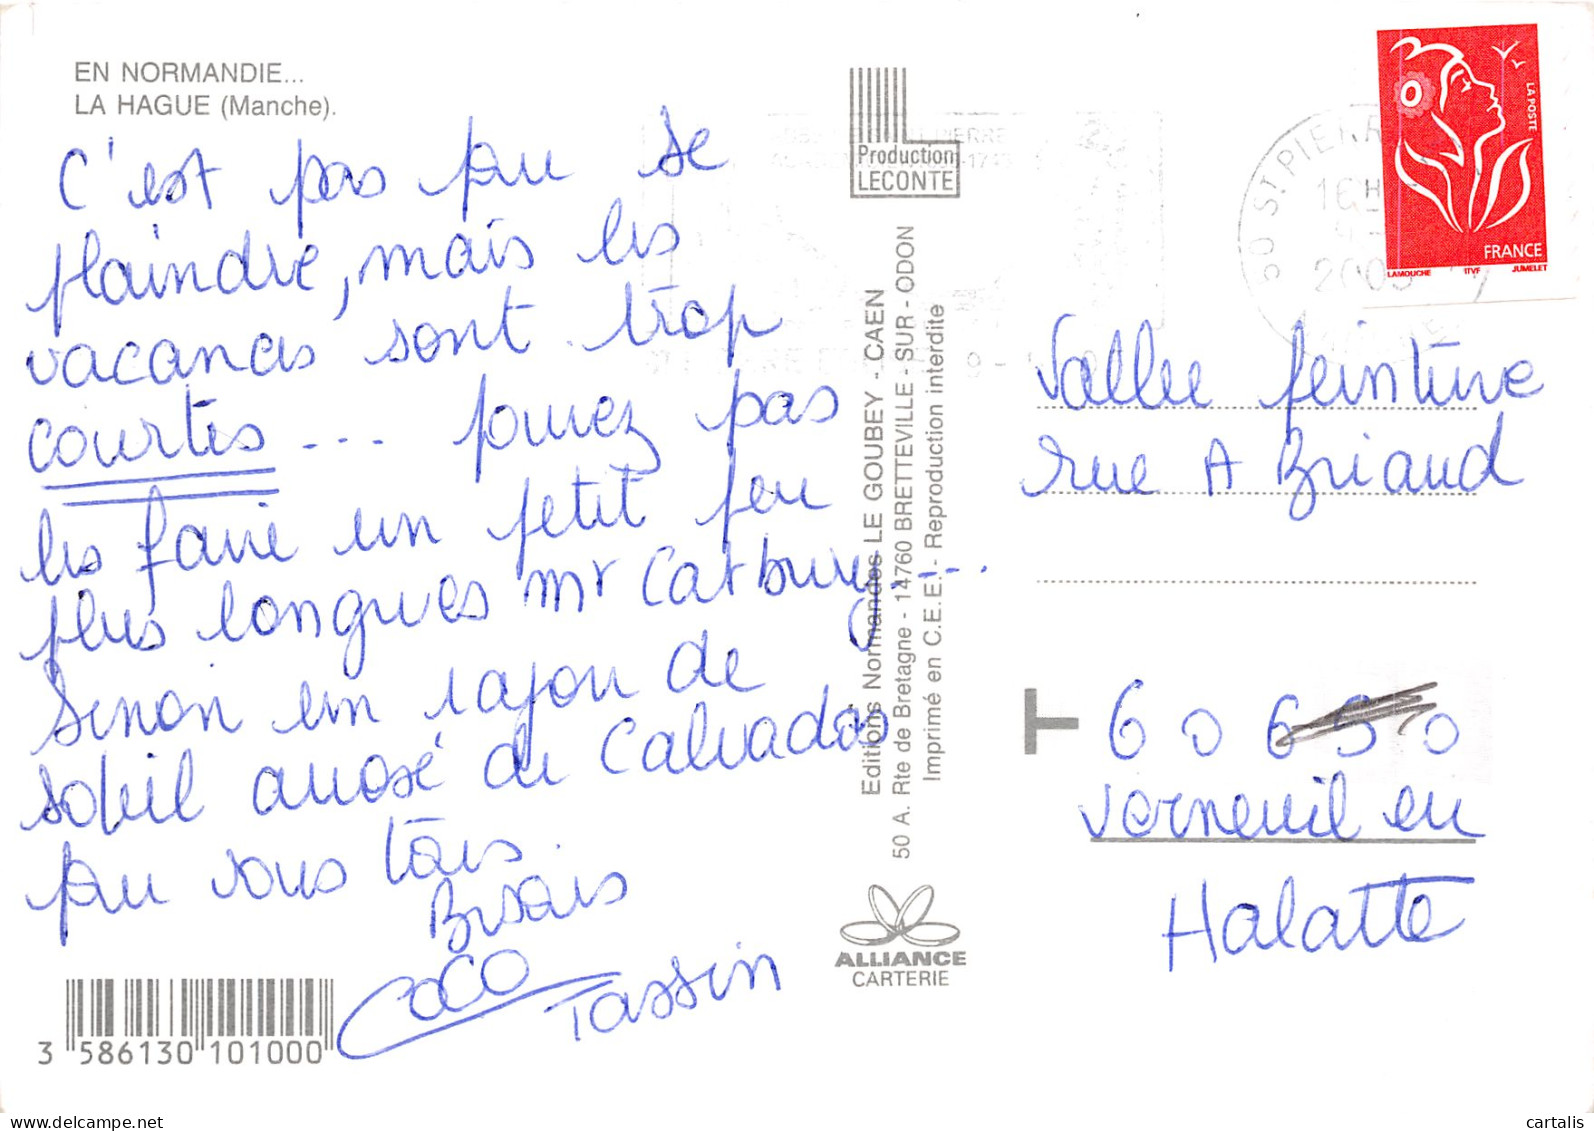 EN NORMANDIE...
LA HAGUE (Manche).
C'est pas pu se
plaindre, mais les
vacances sont trop
courtes ... pouvez pas
les faire un petit peu
plus longues Mr Catbury....
Sinon un rayon de
soleil arrosé du Calvados
pu vous tous.
Bisous
COCO
Tassin
3 586130 101000
Production
LECONTE
Editions Normandes LE GOUBEY - CAEN
50 A. Rte de Bretagne - 14760 BRETTEVILLE - SUR - ODON
Imprimé en C.E.E. - Reproduction interdite
ALLIANCE
CARTERIE
50 ST PIERR
16H
200
LA POSTE
FRANCE
LAMOUCHE ITVF JUMELET
Vallee peinture
rue A Briand
60 6 0
Verneuil en
Halatte
delcampe.net
cartalis